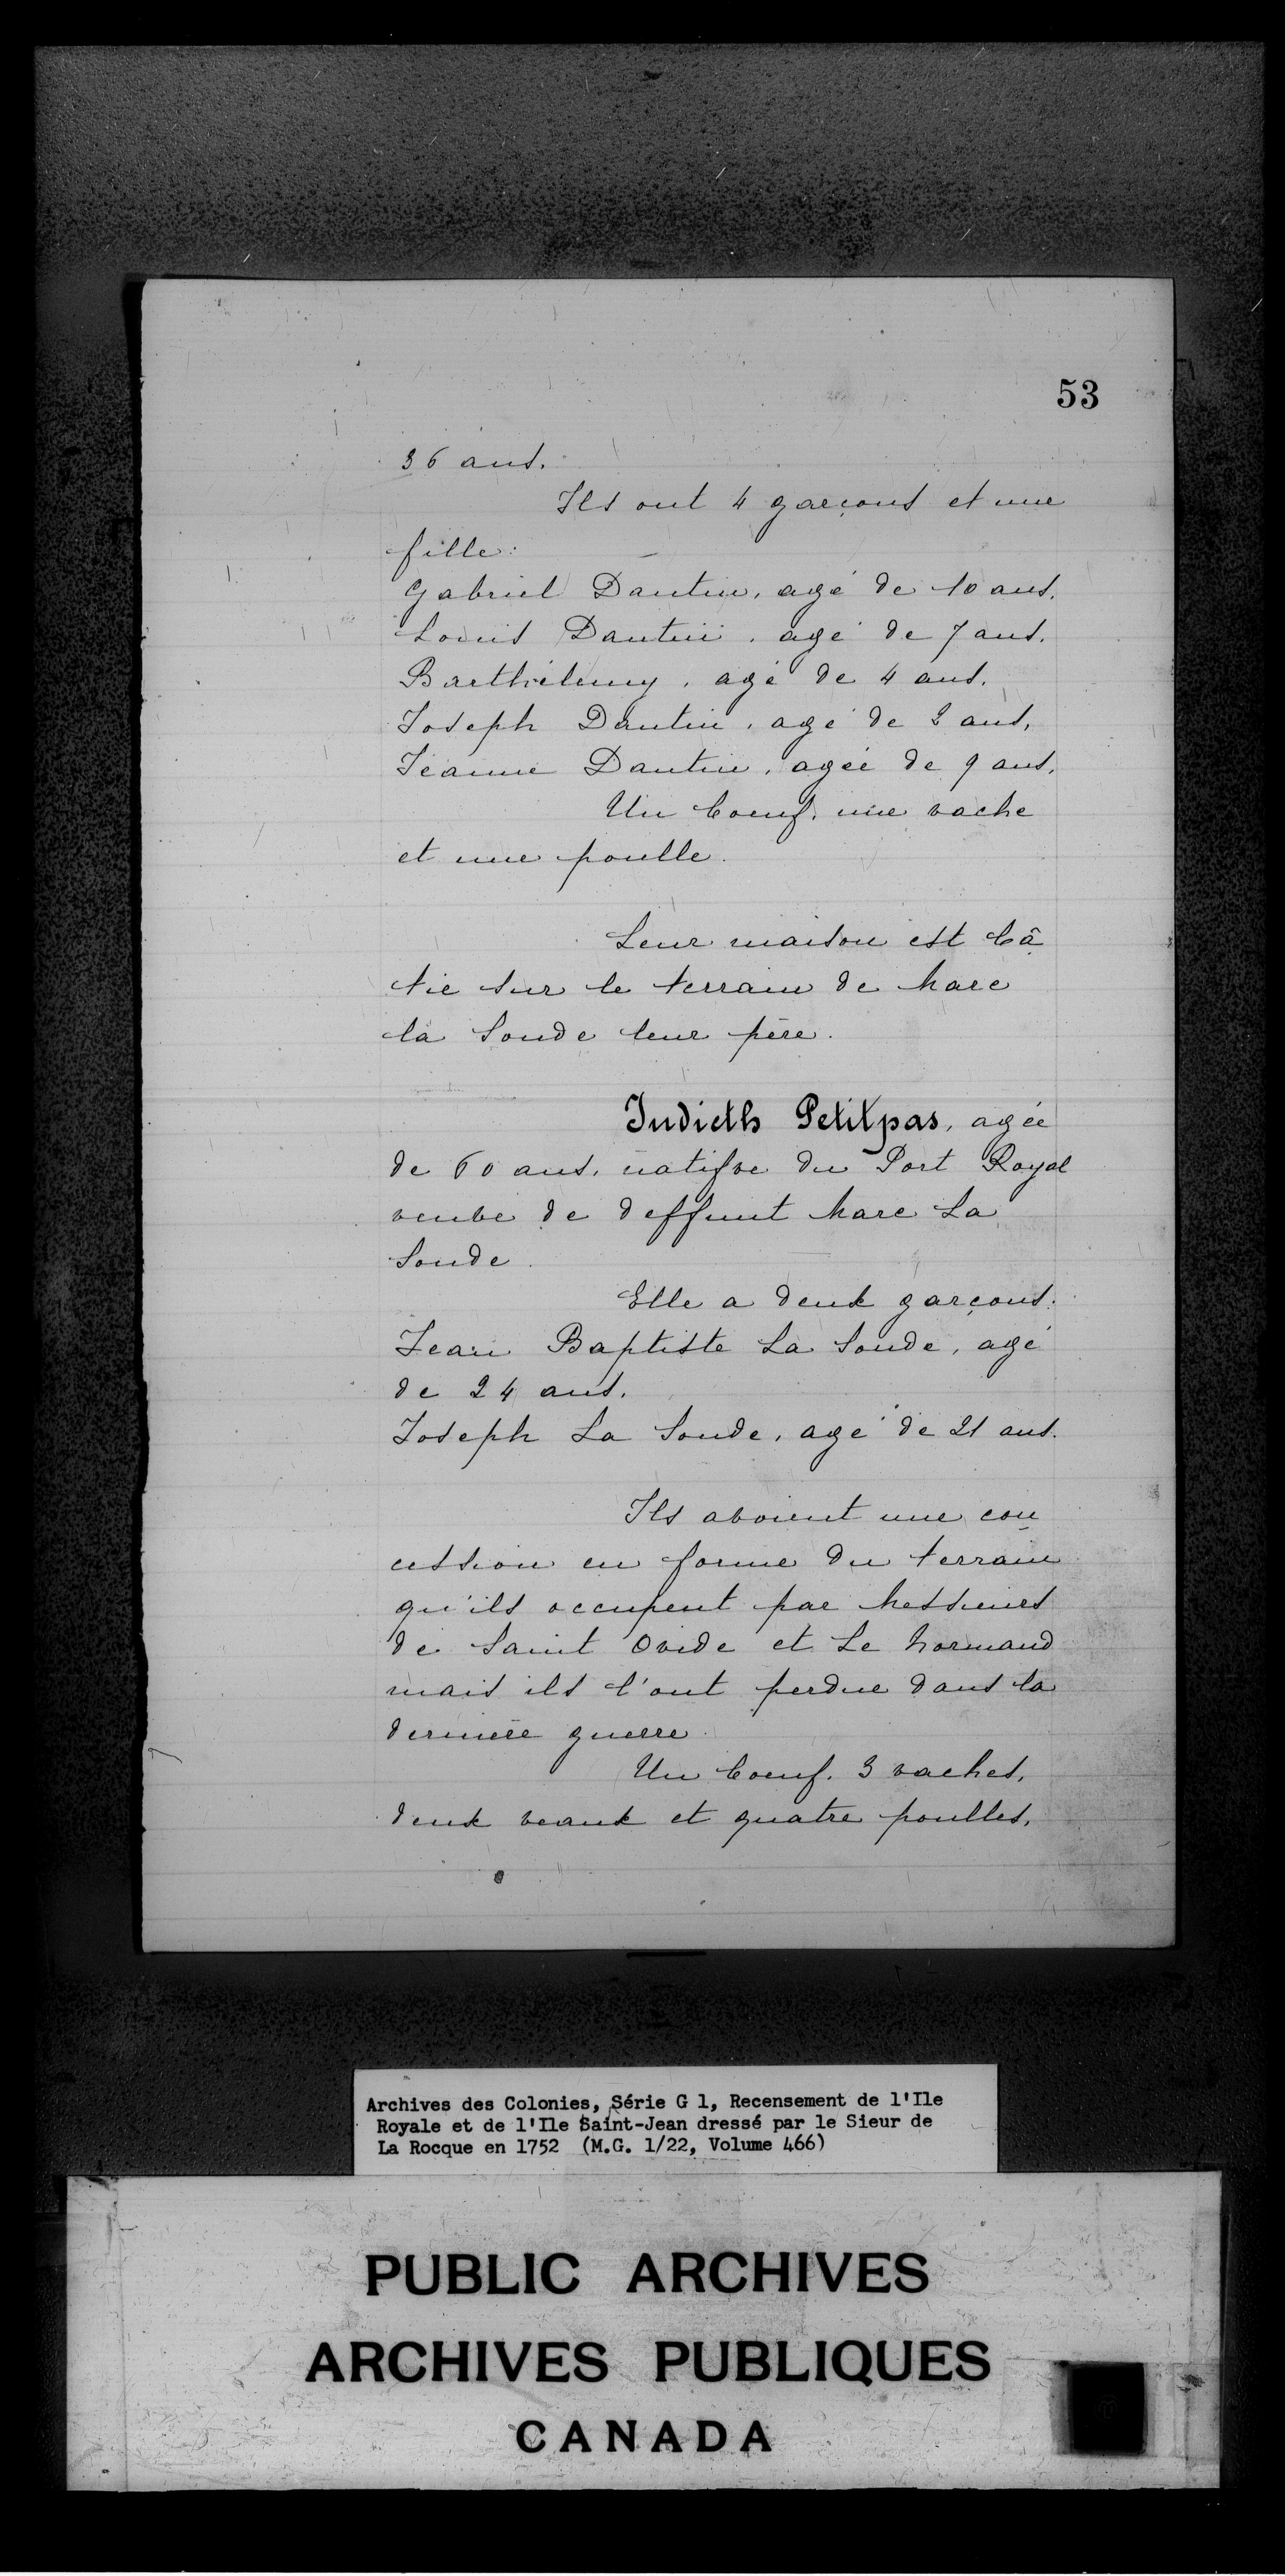 53
36 ans.
Ils ont 4 garçons et une
fille:
Gabriel Dantin, agé de 10 ans.
Louis Dantin, agé de 7 ans.
Barthélemy, agé de 4 ans.
Joseph Dantin, agé de 2 ans,
Jeanne Dantin, agée de 9 ans.
Un boeuf, une vache
et une poulle.
Leur maison est bâ
tie sur le terrain de Marc
la Sonde leur père.
Judieth Petitpas, agée
de 60 ans, natifve du Port Royal
veuve de deffunt Marc La
Sonde.
Elle a deux garçons:
Jean Baptiste La Sonde, agé
de 24 ans.
Joseph La Sonde, agé de 21 ans.
Ils avoient une con
cession en forme du terrain
qu'ils occupent par Messieurs
de Saint Ovide et Le Normand
mais ils l'ont perdue dans la
dernière guerre.
Un boeuf, 3 vaches,
deux veaux et quatre poulles.
Archives des Colonies, Série G 1, Recensement de l'Ile
Royale et de l'Ile Saint-Jean dressé par le Sieur de
La Rocque en 1752 (M.G. 1/22, Volume 466)
PUBLIC ARCHIVES
ARCHIVES PUBLIQUES
CANADA